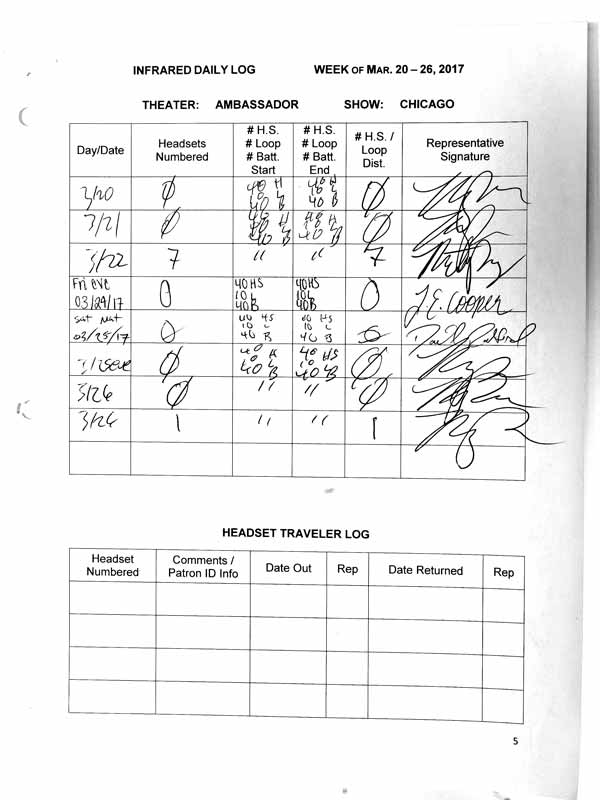 INFRARED DAILY LOG WEEK OF MAR. 20 – 26, 2017
THEATER: AMBASSADOR SHOW: CHICAGO
Day/Date Headsets Numbered # H.S. # Loop # Batt. Start # H.S. # Loop # Batt. End # H.S. / Loop Dist. Representative Signature
3/20 Ø 40 H 10 L 40 B 40 H 10 L 40 B Ø
3/21 Ø 40 H 10 L 40 B 40 H 10 L 40 B Ø
3/22 7 " " 7
Fri eve 03/24/17 0 40HS 10L 40B 40HS 10L 40B 0 J.E. Cooper
Sat Mat 03/25/17 0 40 HS 10 L 40 B 40 HS 10 L 40 B 0
3/25eve Ø 40 H 10 L 40 B 40 HS 10 L 40 B Ø
3/26 Ø " " Ø
3/26 1 " " 1
HEADSET TRAVELER LOG
Headset Numbered Comments / Patron ID Info Date Out Rep Date Returned Rep
5